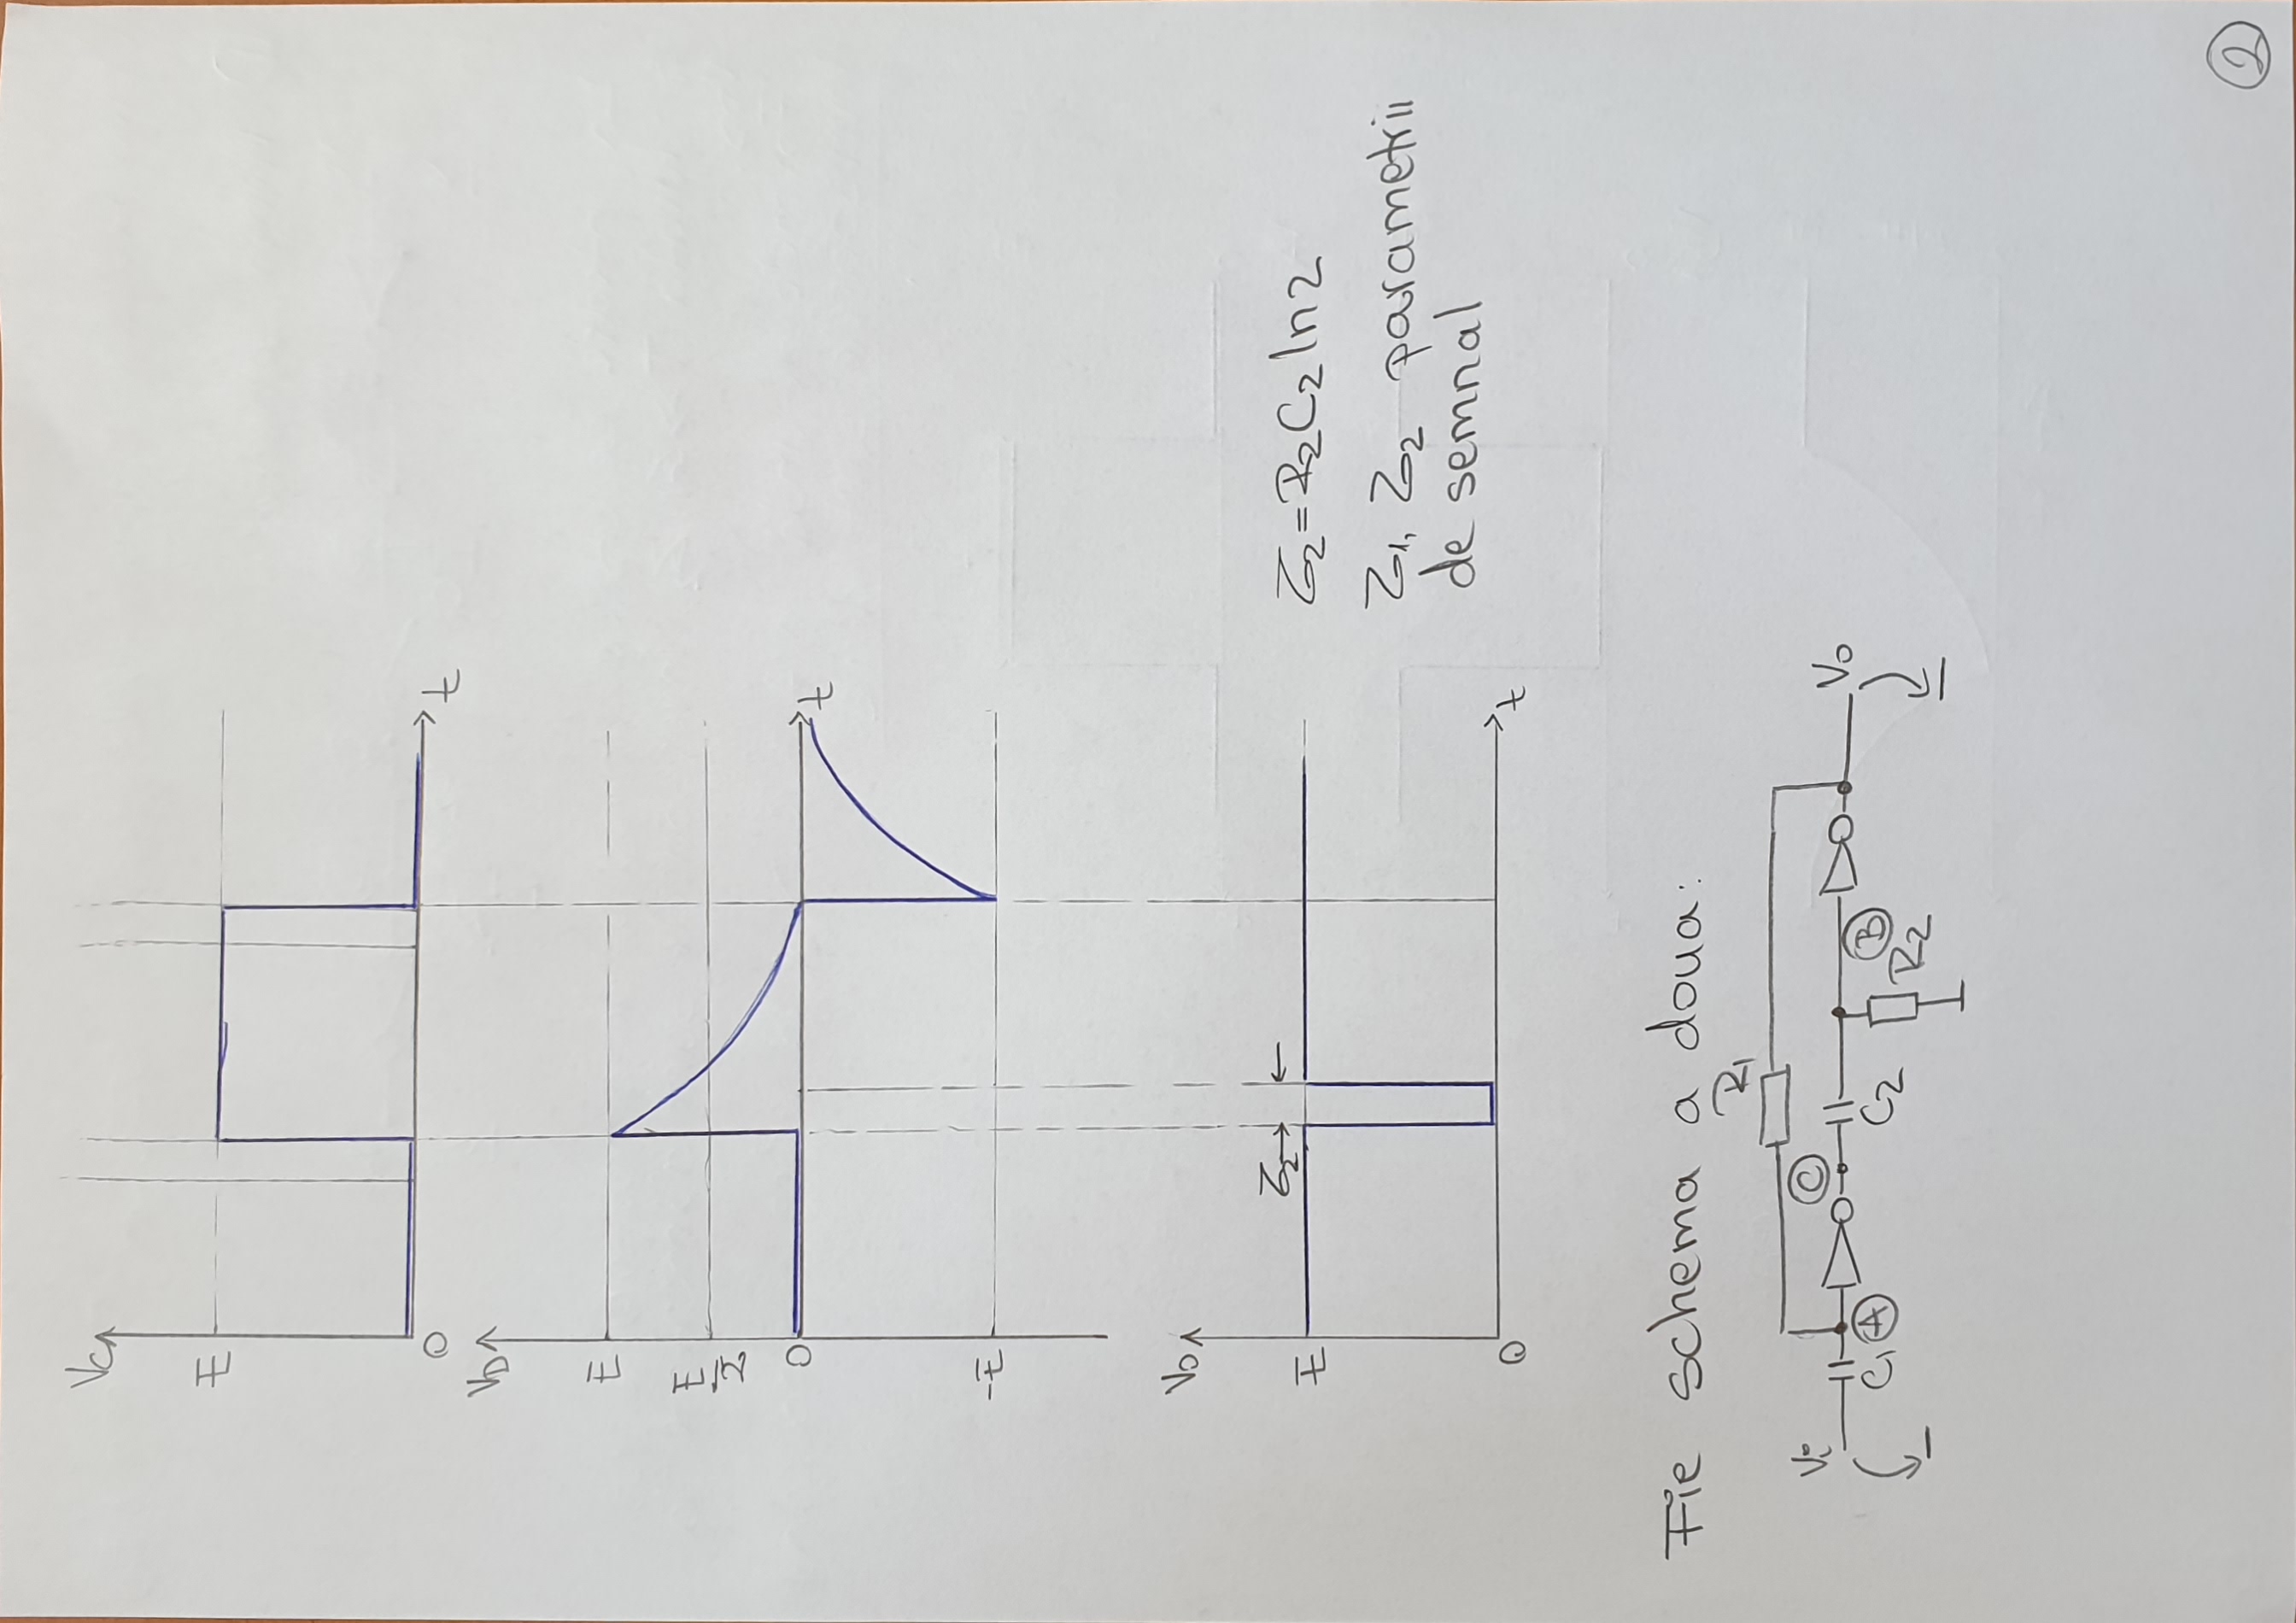 Vc
E
0
t
VD
E
E/2
0
t
-E
Vo
τ2
E
0
t
τ2 = R2C2 ln2
τ1, τ2 parametrii
de semnal
Fie schema a doua:
R1
Vi
C
Vo
C1
A
C2
B
R2
2